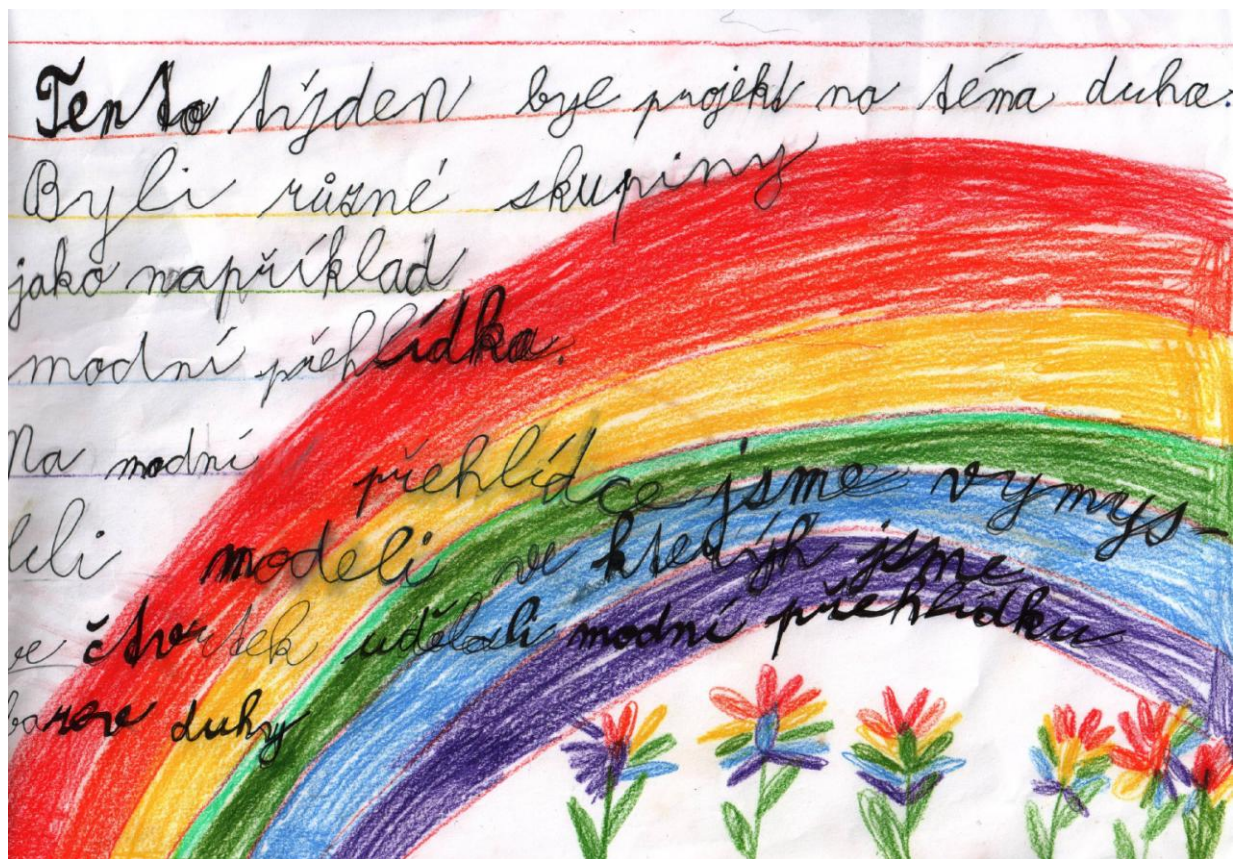 Tento týden bye projekt na téma duha.
Byli různé skupiny
jako například
modní přehlídka.
Na modní přehlídce jsme vymys-
leli modeli ve kterých jsme
ve čtvrtek udělali modní přehlídku
barev duhy